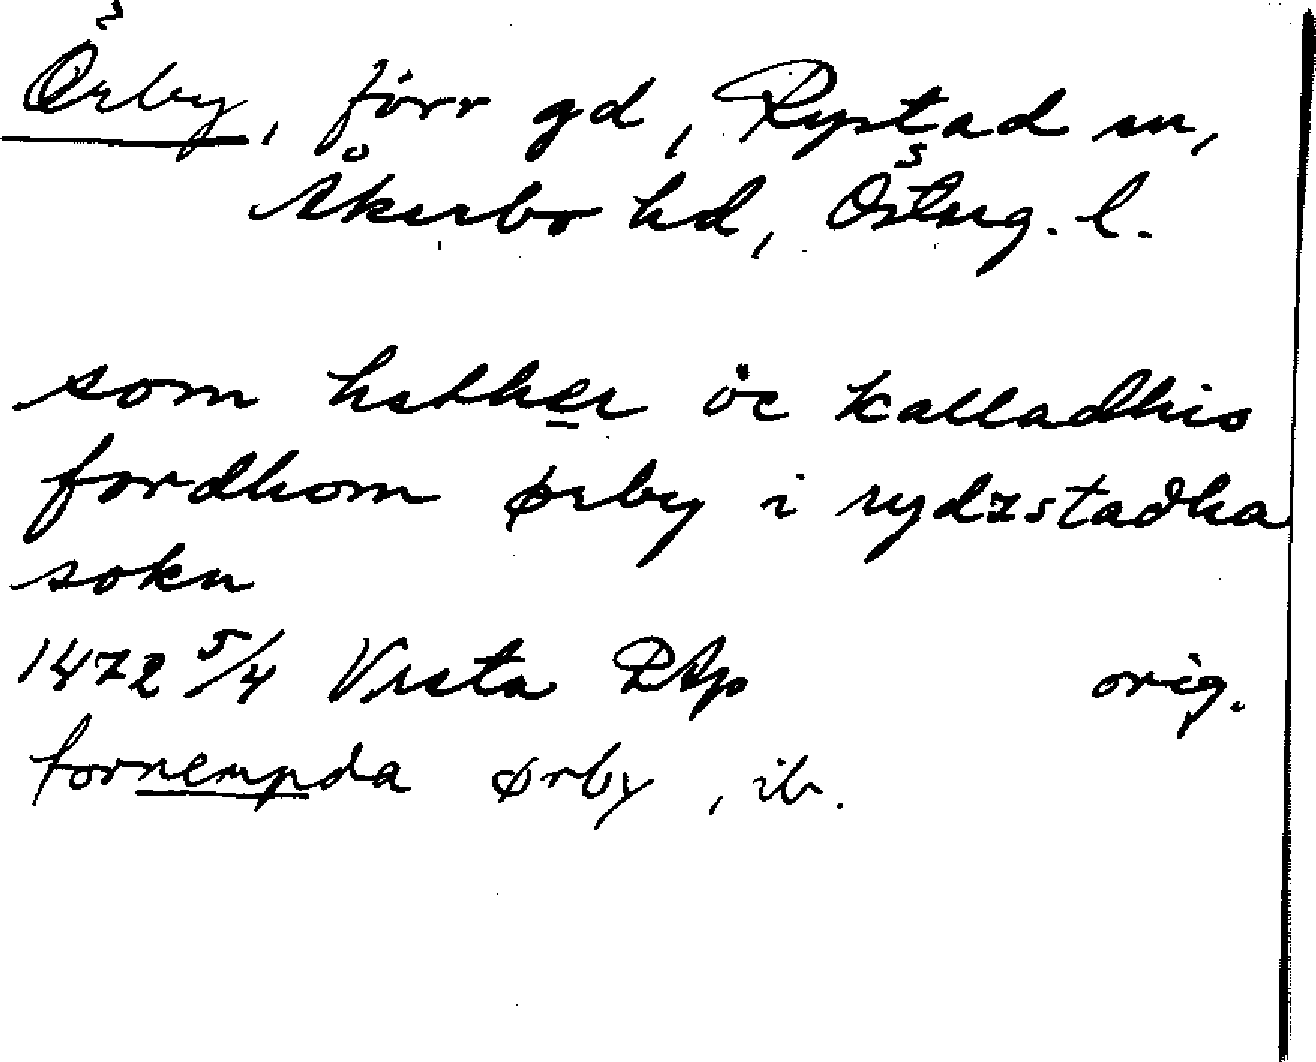 Örby, förr gd, Rystad sn,
Åkerbo hd, Österg. l.
som hether oc kalladhis
fordhom ørby i rydzstadha
sokn
1472 5/4 Vreta RAp orig.
fornempda ørby, ib.